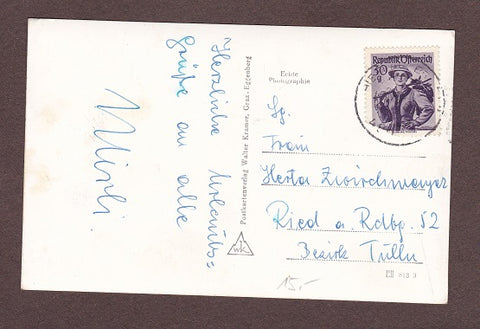 Herzliche Urlaubs=
grüße an alle
Postkartenverlag Walter Kramer, Graz-Eggenberg
Echte
Photographie
REPUBLIK ÖSTERREICH
30
Sg.
Frau
Herta Zwirchmayer
Ried a. Rdbg. 52
Bezirk Tulln
wk
15.-